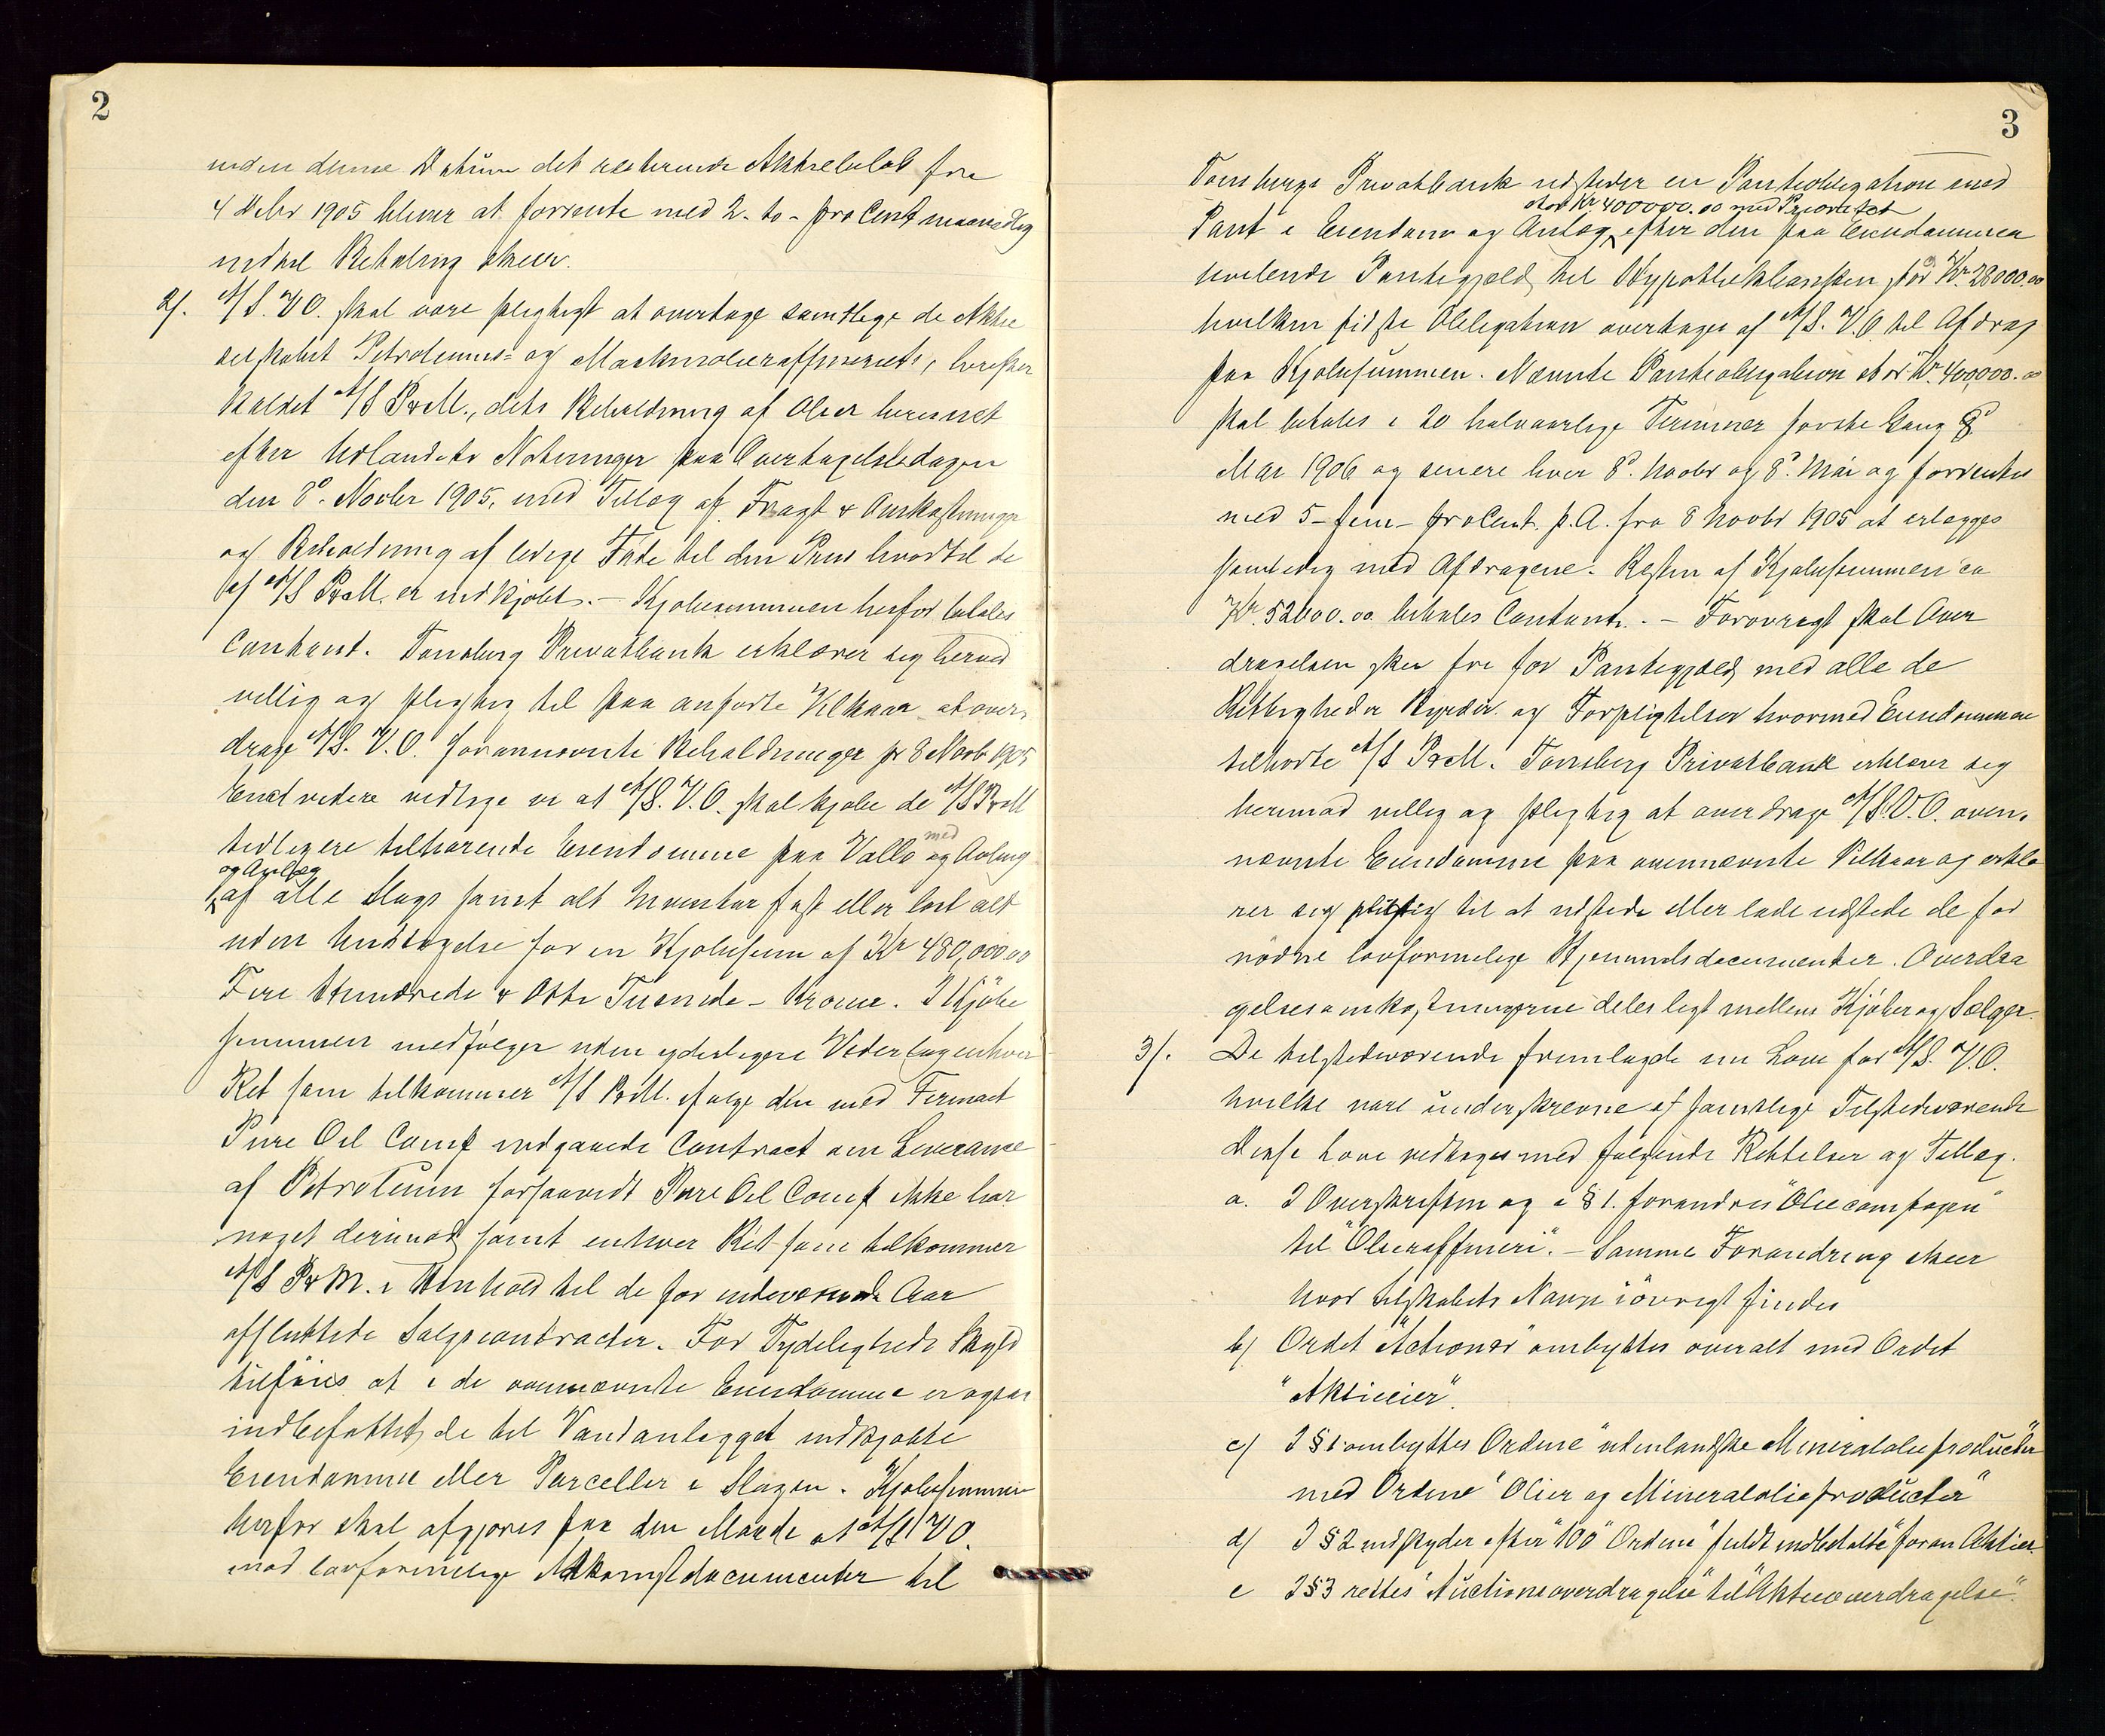 2
inden denne Datum det resterende Aktiebeløb fra
4 Debr 1905 bliver at forrente med 2 - to - pro Cent maanedlig
indtil Betaling skeer.
2/. A/S. V.O. skal være pligtigt at overtage samtlige de Aktie
selskabet Petroleums= og Maskinolieraffineriets, herefter
kaldet A/S P&M., dets Beholdning af Olier beregnet
efter Udlandets Noteringer paa Overtagelsesdagen
den 8de Novbr 1905, med Tillæg af Fragt & Omkostninger
og Beholdning af ledige Fade til den Pris hvortil de
af A/S P&M. er indkjøbt. — Kjøbesummen herfor betales
Contant. Tønsberg Privatbank erklærer sig herved
villig og pligtig til paa anførte Vilkaar at over-
drage A/S. V.O. forannævnte Beholdninger pr 8 Novb 1905
Endvidere vedtoges at A/S. V.O. skal kjøbe de A/S P&M
tidligere tilhørende Eiendomme paa Vallø med og Avling
og Anlæg
af alle Slags samt alt Inventar fast eller løst alt
uden Undtagelse for en Kjøbesum af Kr 480,000.00
Fire Hundrede & Otte Tusende - Kroner. I Kjøbe
summen medfølger uden yderligere Vederlag enhver
Ret som tilkommer A/S P&M. ifølge den med Firmaet
Pure Oil Comp indgaaede Contract om Leverance
af Petroleum forsaavidt Pure Oil Comp ikke har
noget derimod, samt enhver Ret som tilkommer
A/S P&M. i Henhold til de for indeværende Aar
afsluttede Salgscontracter. For Tydeligheds Skyld
tilføies at i de ovennævnte Eiendomme er ogsaa
indbefattet de til Vandanlægget indkjøbte
Eiendomme eller Parceller i Slagen. Kjøbesummen
herfor skal afgjøres paa den Maade at A/S V.O.
mod lovformelige Adkomstdocumenter til
3
Tønsbergs Privatbank udsteder en Panteobligation med
stor Kr 400000.00 med Prioritet
Pant i Eiendom og Anlæg, efter den paa Eiendommen
hvilende Pantegjæld til Hypothekbanken, stor Kr. 28000.00
hvilken sidste Obligation overtages af A/S. V.O. til Afdrag
paa Kjøbesummen. Nævnte Panteobligation stor Kr. 400,000.00
skal betales i 20 halvaarlige Terminer første Gang 8de
Mai 1906 og senere hver 8de Novbr og 8de Mai og forrentes
med 5 - fem - pro Cent. p. A. fra 8 Novbr 1905 at erlægges
samtidig med Afdragene. Resten af Kjøbesummen ca
Kr. 52000.00 betales Contant. — Forøvrigt skal Over
dragelsen ske fri for Pantegjæld, med alle de
Rettigheder Byrder og Forpligtelser hvormed Eiendommene
tilhørte A/S P&M. Tønsberg Privatbank erklærer sig
herimod villig og pligtig at overdrage A/S. V.O. oven-
nævnte Eiendomme paa ovennævnte Vilkaar og erklæ
rer sig pligtig til at udstede eller lade udstede de for
nødne lovformelige Hjemmelsdocumenter. Overdra
gelsesomkostningerne deles ligt mellem Kjøber og Sælger.
3/. De tilstedeværende fremlagde nu Love for A/S. V.O.
hvilke vare underskrevne af samtlige Tilstedeværende
Disse Love vedtoges med følgende Rettelser og Tillæg.
a. I Overskriften og i § 1. forandres "Oliecompagni"
til "Olieraffineri". — Samme Forandring skeer
hvor Selskabets Navn iøvrigt findes
b) Ordet "Actionær" ombyttes overalt med Ordet
"Aktieeier".
c) I § 1 ombyttes Ordene "udenlandske Mineralolieproducter"
med Ordene "Olier og Mineralolieproducter"
d) I § 2 indskydes efter "100" Ordene "fuldt indbetalte" foran Aktier.
e I § 3 rettes "Auctionsoverdragelse" til "Aktieoverdragelse".